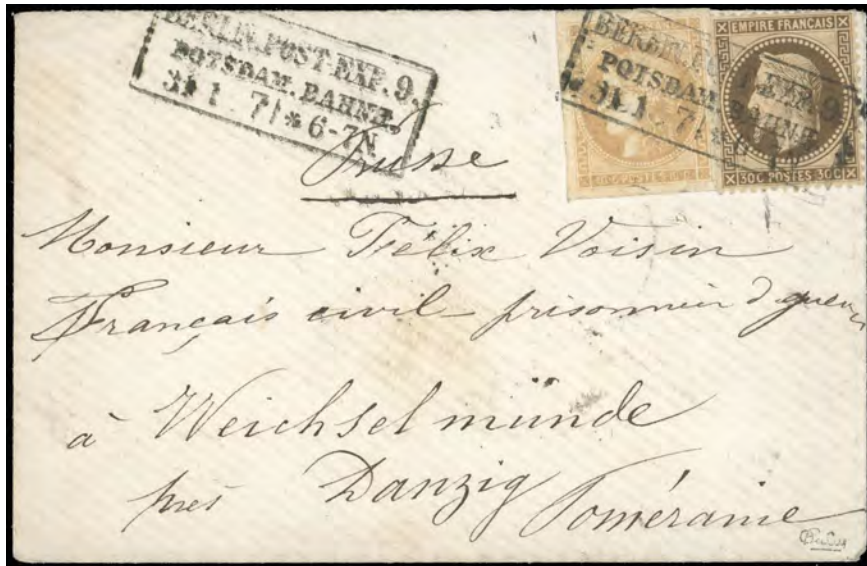 BERLIN POST-EXP. 9.
POTSDAM. BAHNH.
31 1 71 * 6-7N
EMPIRE FRANÇAIS
30C POSTES 30C
Prusse
Monsieur Félix Voisin
Français civil - prisonnier de guerre
à Weichselmünde
près Danzig Poméranie